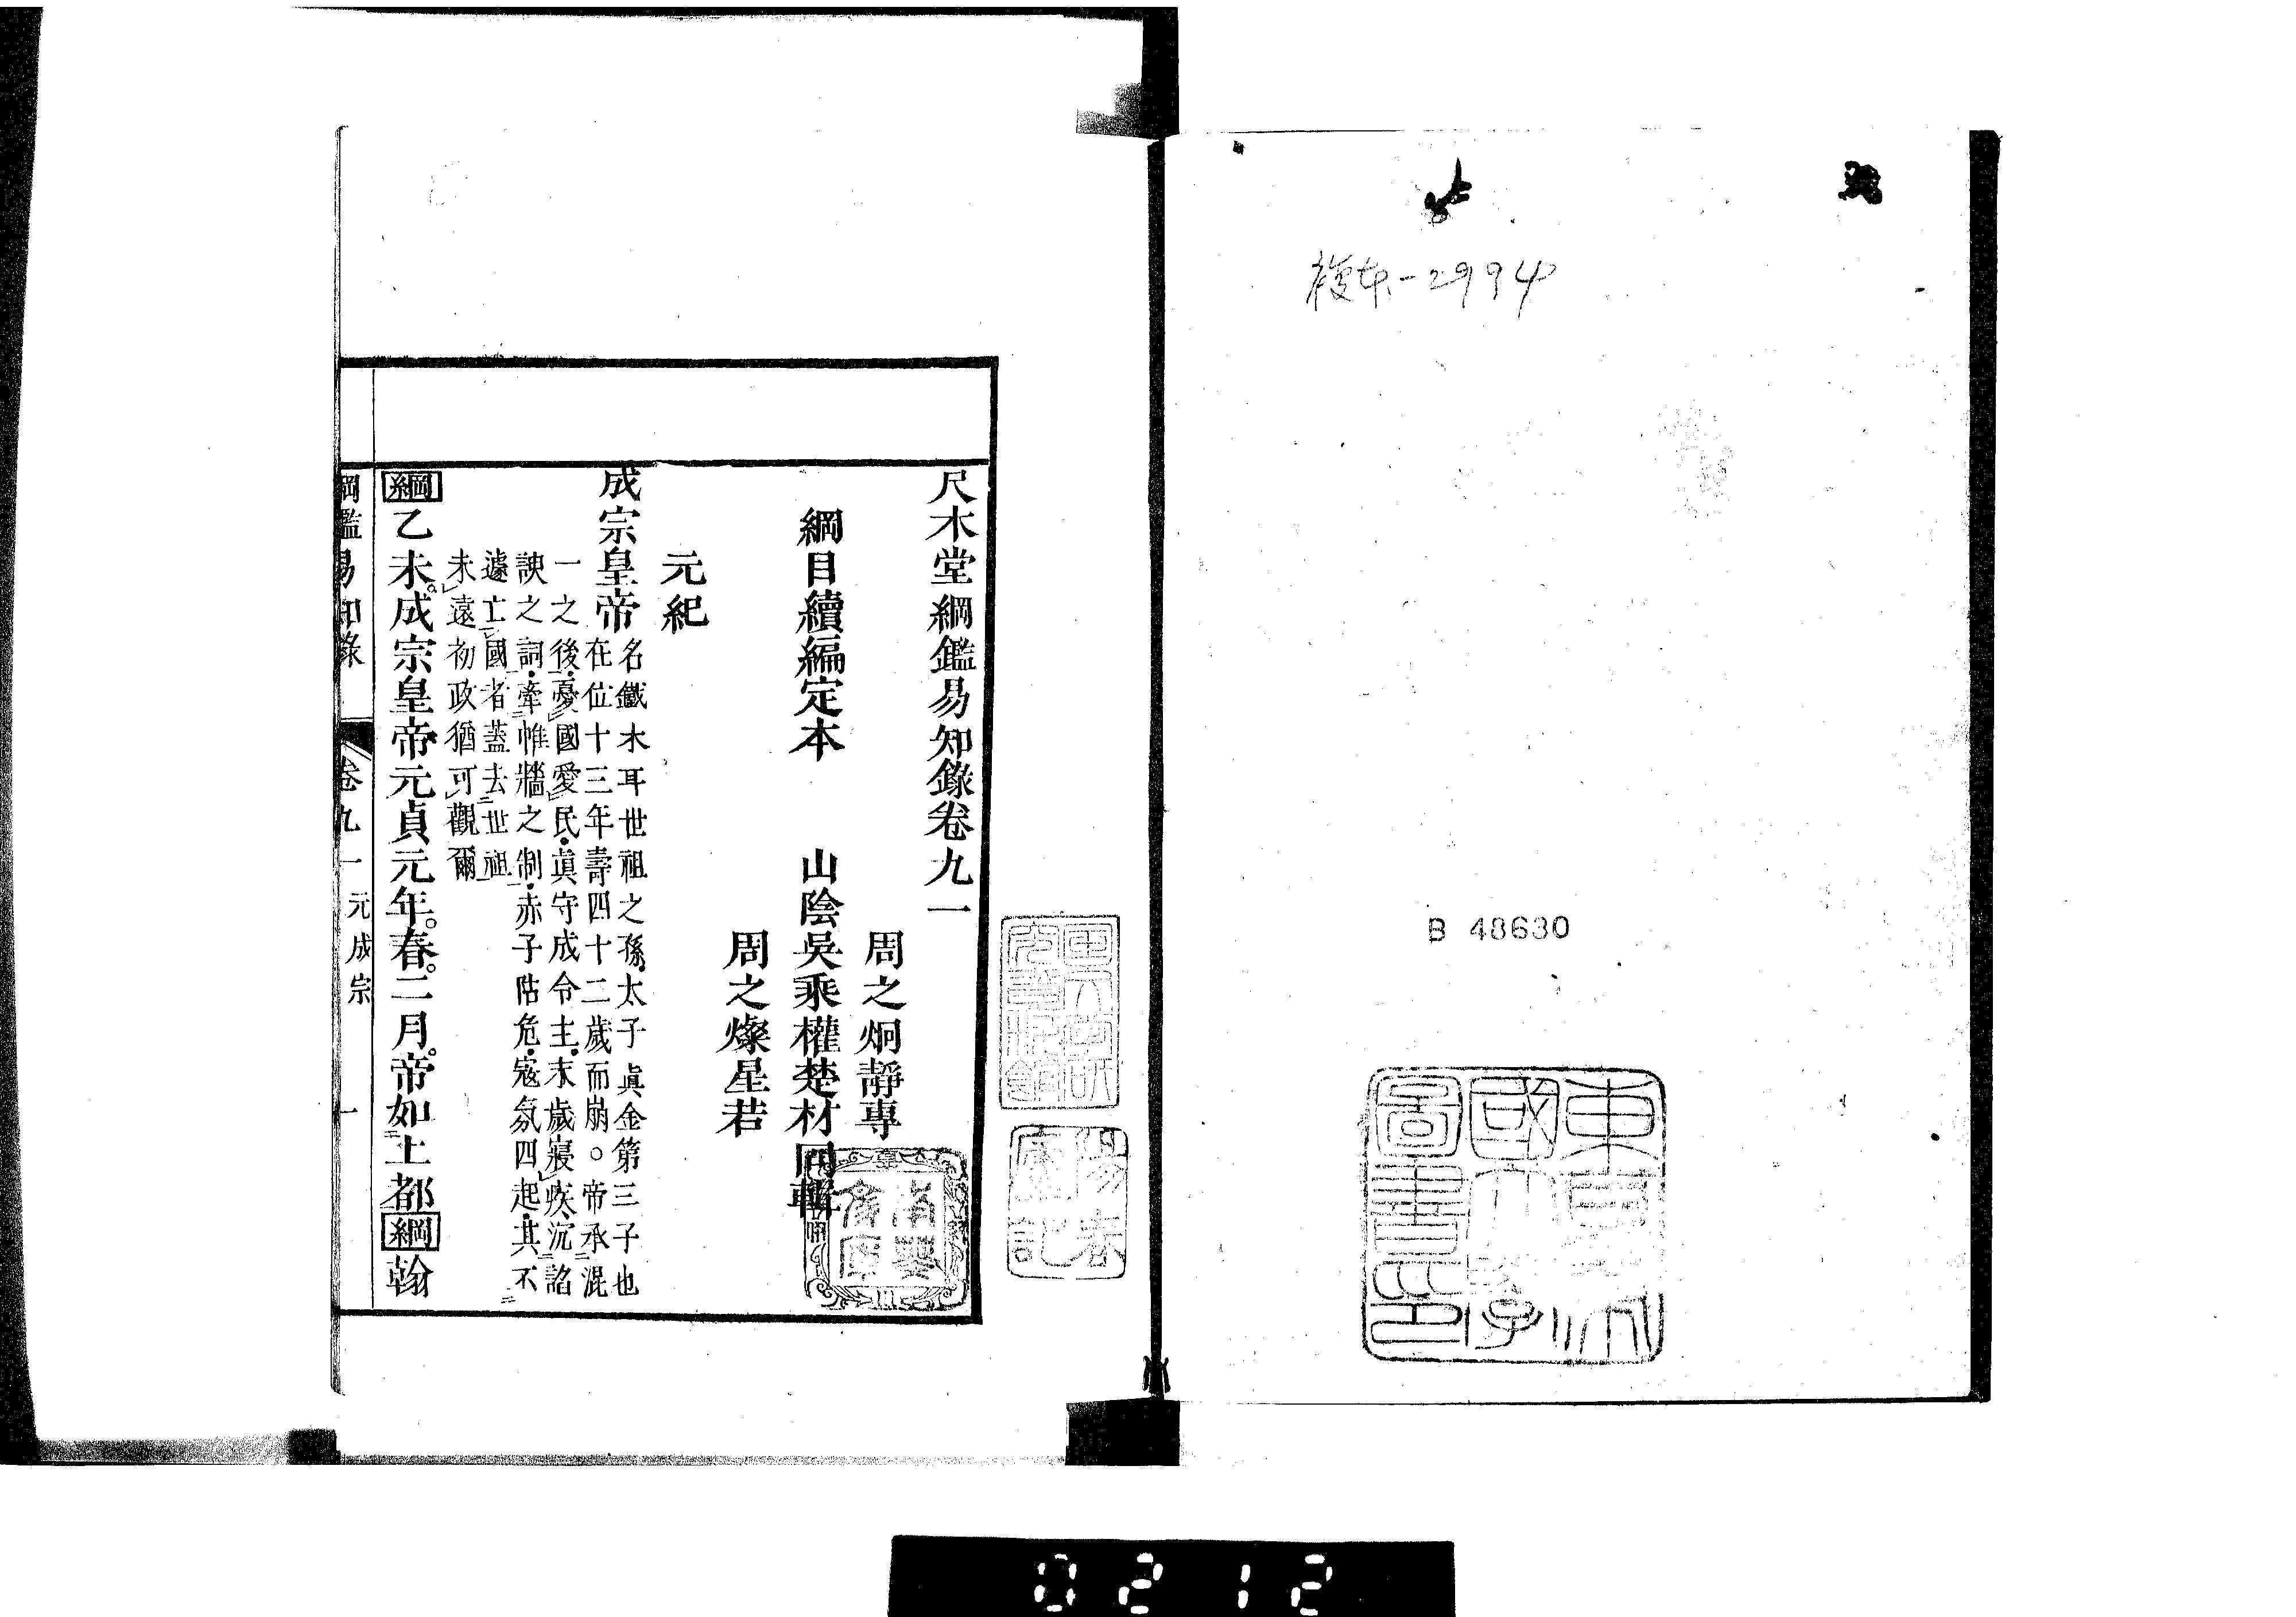 複本-2994
B 48630
東京帝國大學圖書印
尺木堂綱鑑易知錄卷九一
周之炯靜專
綱目續編定本　山陰吳乘權楚材同輯
周之燦星若
元紀
成宗皇帝
名鐵木耳世祖之孫太子眞金第三子也
在位十三年壽四十二歲而崩○帝承混
一之後憂國愛民眞守成令主末歲寢疾沉諂
諛之詞牽帷牆之制赤子阽危寇氛四起其不
遽亡國者蓋去世祖
未遠初政猶可觀爾
綱乙未。成宗皇帝元貞元年。春。二月。帝如上都綱翰
綱鑑易知錄　卷九一　元成宗　一
0212